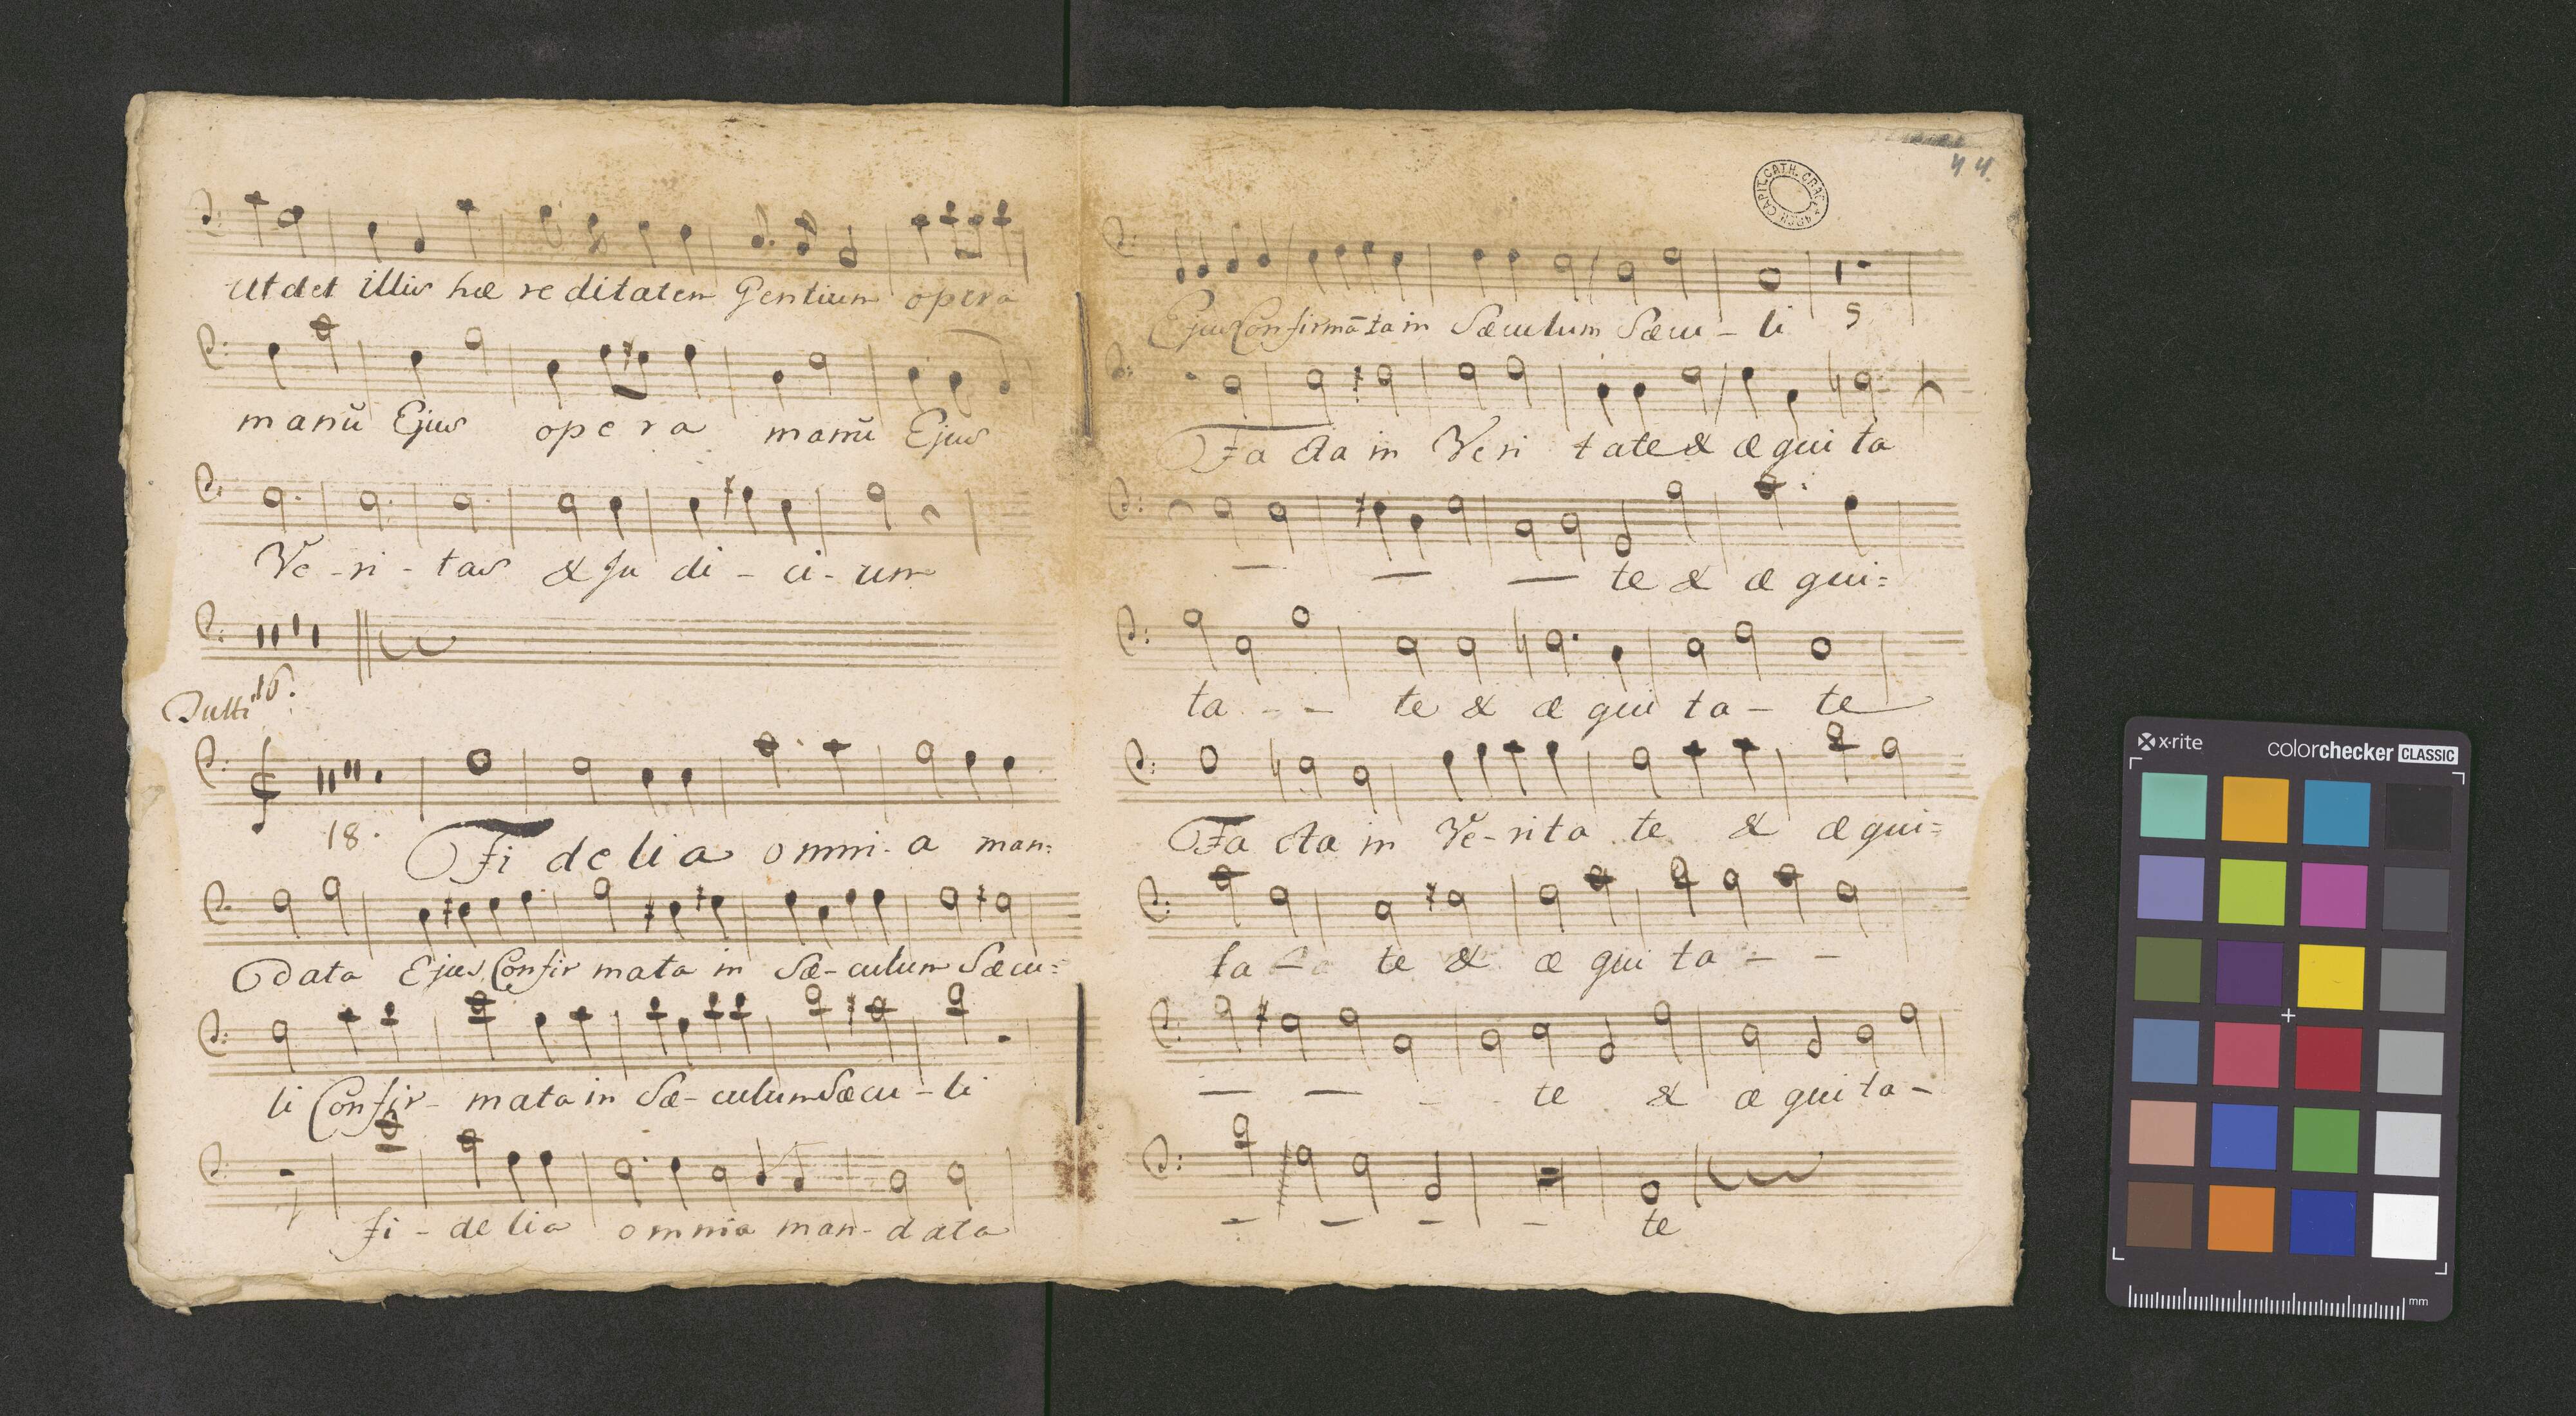 Ut det illis hæ re ditatem Gentium opera
manū Ejus opera manū Ejus
Ve - ri - tas & Ju di - ci - um
16.
Tutti
18.
Fi de li a omni - a man:
data Ejus Confir mata in Sæ - culum Sæcu:
li Confir - mata in Sæ - culum Sæcu - li
fi - de lia omnia man - data
44.
Ejus Confirmāta in Sæculum Sæcu - li 5
Fa cta in Veri tate & æ qui ta
te & æ qui:
ta - - te & æ qui ta - te
Fa cta in Ve - rita te & æ qui:
ta - te & æ qui ta - -
te & æ qui ta -
te
x-rite colorchecker CLASSIC
mm